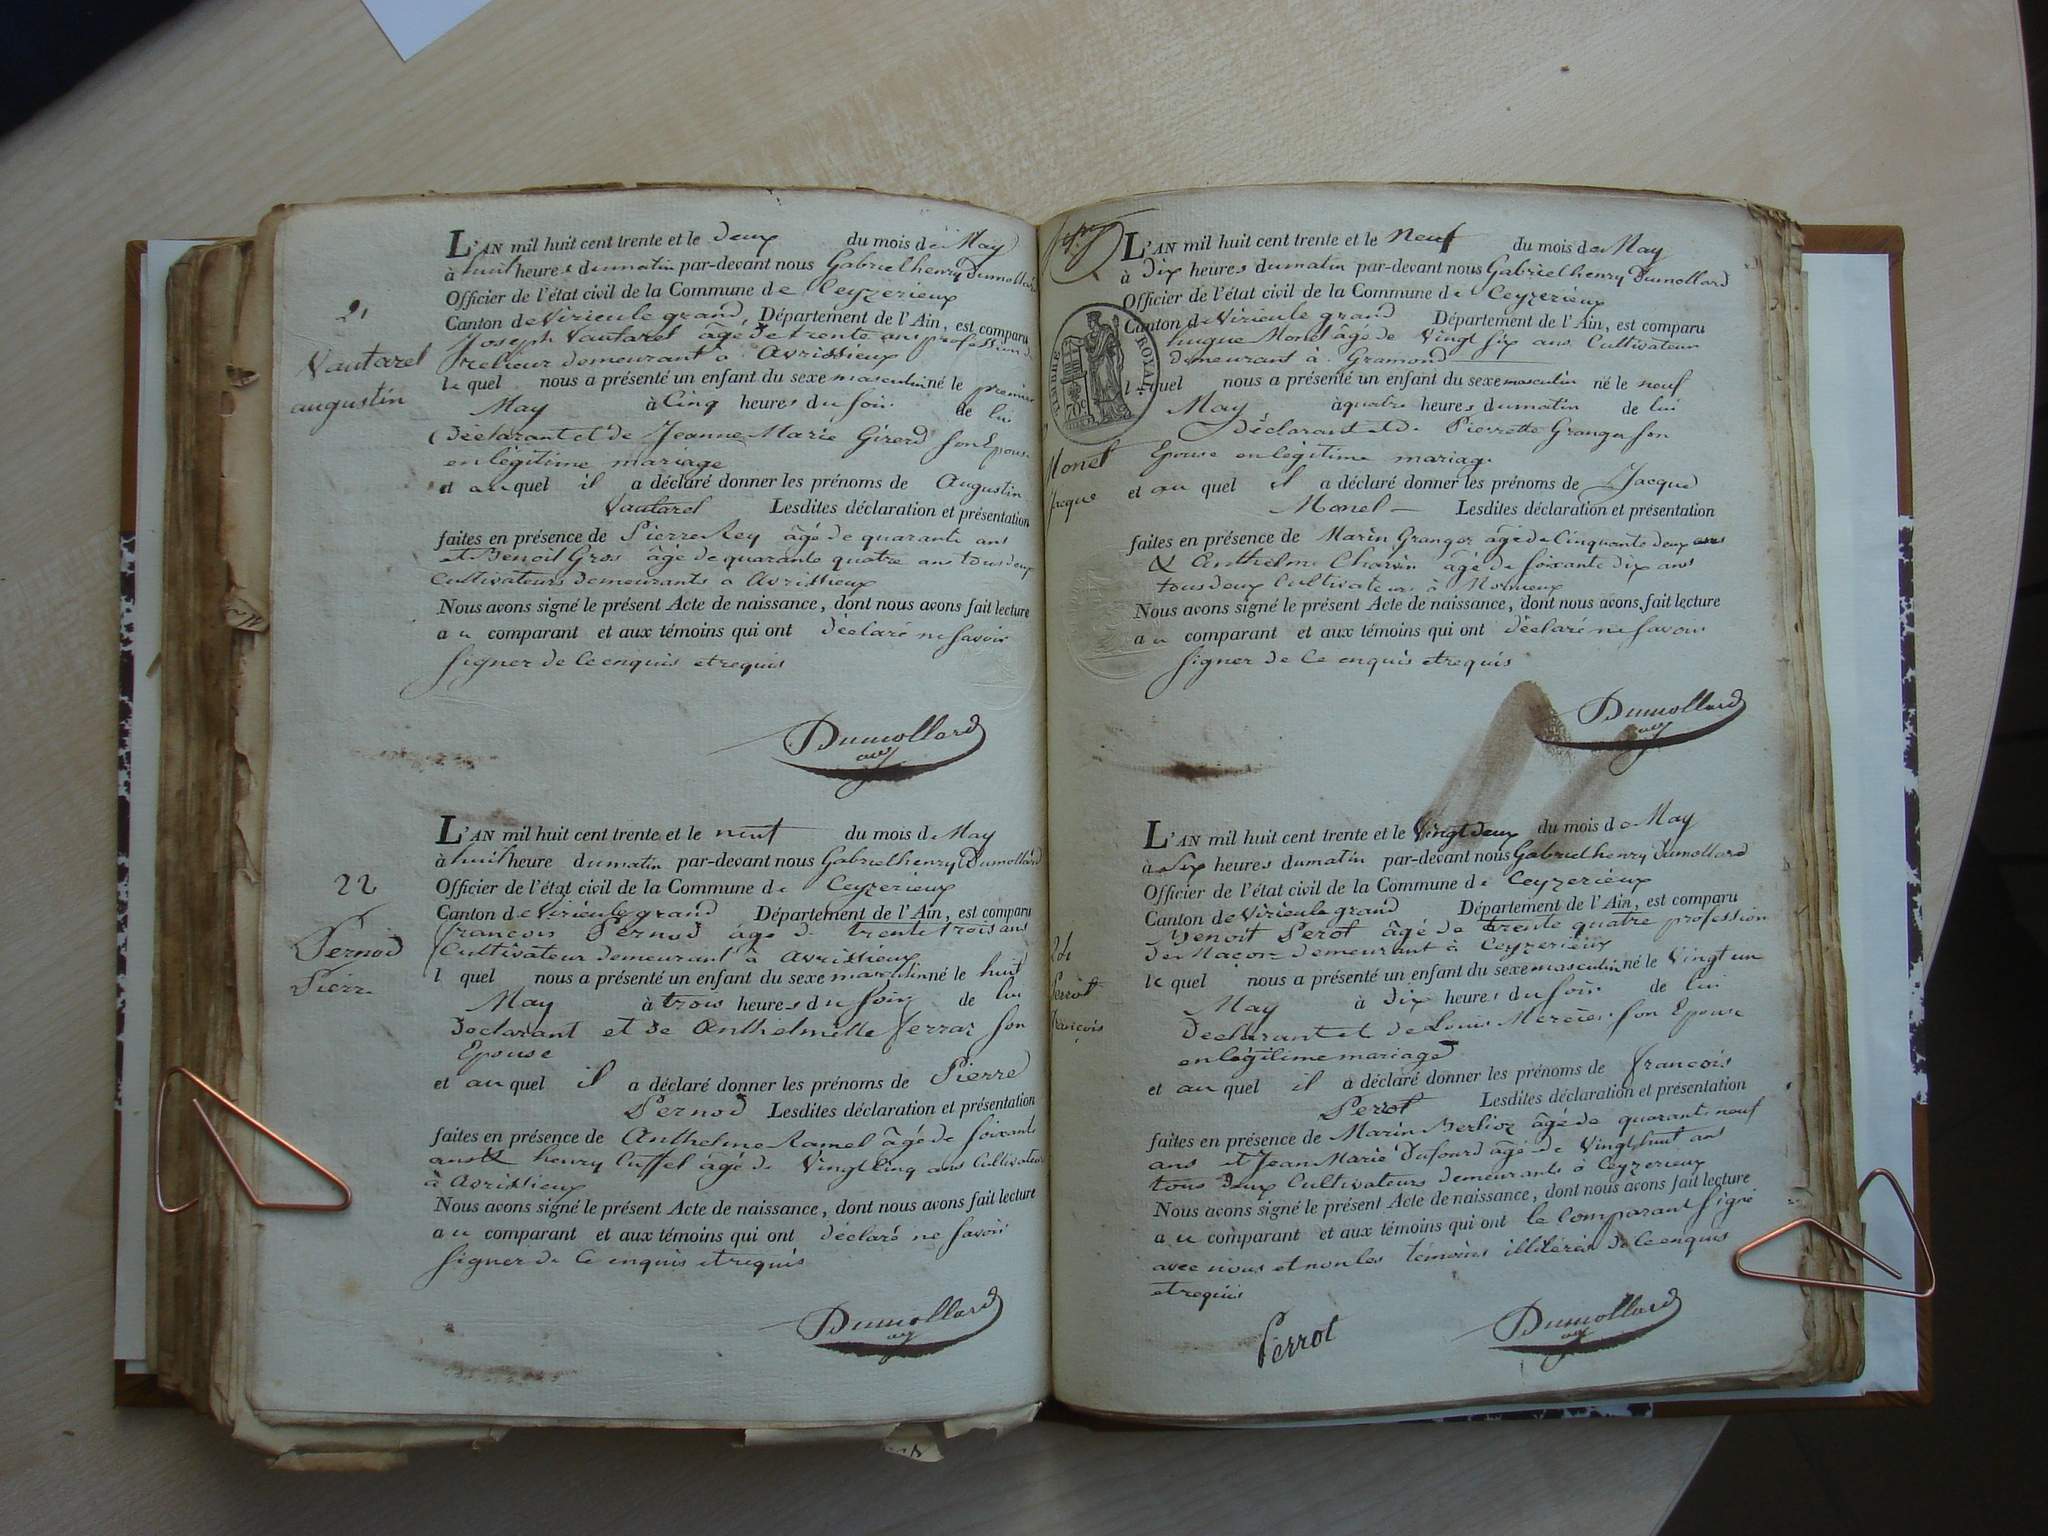 L'AN mil huit cent trente et le deux du mois de May
à huit heures du matin par-devant nous Gabriel henry Dumollard
Officier de l'état civil de la Commune de Ceyzerieux
Canton de Virieule grand, Département de l'Ain, est comparu
Joseph Vautarel âgé de trente ans profession de
relieur demeurant à Avrissieux
le quel nous a présenté un enfant du sexe masculin né le premier
May à Cinq heures du soir de lui
Déclarant et de Jeanne Marie Girerd son Epouse
en légitime mariage
et au quel il a déclaré donner les prénoms de Augustin
Vautarel Lesdites déclaration et présentation
faites en présence de Pierre Rey âgé de quarante ans
et Benoit Gros âgé de quarante quatre ans tous deux
Cultivateurs demeurants a Avrissieux
Nous avons signé le présent Acte de naissance, dont nous avons fait lecture
au comparant et aux témoins qui ont déclaré ne savoir
signer de ce enquis et requis
Dumollard
21
Vautarel
augustin
L'AN mil huit cent trente et le neuf du mois de May
à huit heure du matin par-devant nous Gabriel henry Dumollard
Officier de l'état civil de la Commune de Ceyzerieux
Canton de Virieule grand Département de l'Ain, est comparu
françois Pernod âgé de trente trois ans
Cultivateur demeurant à Avrissieux
l quel nous a présenté un enfant du sexe masculin né le huit
May à trois heures du soir de lui
Déclarant et de Anthelmette ferrar son
Epouse
et au quel il a déclaré donner les prénoms de Pierre
Pernod Lesdites déclaration et présentation
faites en présence de Anthelme Ramel âgé de soixante
ans & henry Cussel âgé de Vingt Cinq ans Cultivateur
à Avrissieux
Nous avons signé le présent Acte de naissance, dont nous avons fait lecture
au comparant et aux témoins qui ont déclaré ne savoir
signer de ce enquis et requis
Dumollard
22
Pernod
Pierre
L'AN mil huit cent trente et le Neuf du mois de May
à Dix heures du matin par-devant nous Gabriel henry Dumollard
Officier de l'état civil de la Commune de Ceyzerieux
Canton de Virieule grand Département de l'Ain, est comparu
hugue Monet âgé de Vingt six ans Cultivateur
demeurant à Gramond
l quel nous a présenté un enfant du sexe masculin né le neuf
May à quatre heures du matin de lui
Déclarant et de Pierrette Granger son
Epouse en légitime mariage
et au quel il a déclaré donner les prénoms de Jacque
Monet Lesdites déclaration et présentation
faites en présence de Marin Granger âgé de Cinquante deux ans
& Anthelme Charvin âgé de soixante dix ans
tous deux Cultivateurs à
Nous avons signé le présent Acte de naissance, dont nous avons fait lecture
au comparant et aux témoins qui ont déclaré ne savoir
signer de ce enquis et requis
Dumollard
TIMBRE ROYAL
70c
Monet
Jacque
L'AN mil huit cent trente et le Vingt deux du mois de May
à Six heures du matin par-devant nous Gabriel henry Dumollard
Officier de l'état civil de la Commune de Ceyzerieux
Canton de Virieule grand Département de l'Ain, est comparu
Benoit Perot âgé de trente quatre profession
de Maçon demeurant à Ceyzerieux
le quel nous a présenté un enfant du sexe masculin né le Vingt un
May à dix heures du soir de lui
Déclarant et de Louis Mercier son Epouse
en légitime mariage
et au quel il a déclaré donner les prénoms de françois
Perrot Lesdites déclaration et présentation
faites en présence de Marin Berlioz âgé de quarante neuf
ans et Jean Marie Dufourd âgé de Vingt huit ans
tous deux Cultivateurs demeurants à Ceyzerieux
Nous avons signé le présent Acte de naissance, dont nous avons fait lecture
au comparant et aux témoins qui ont le comparant signé
avec nous et non les témoins illitérés de ce enquis
et requis
Perrot Dumollard
Perrot
françois